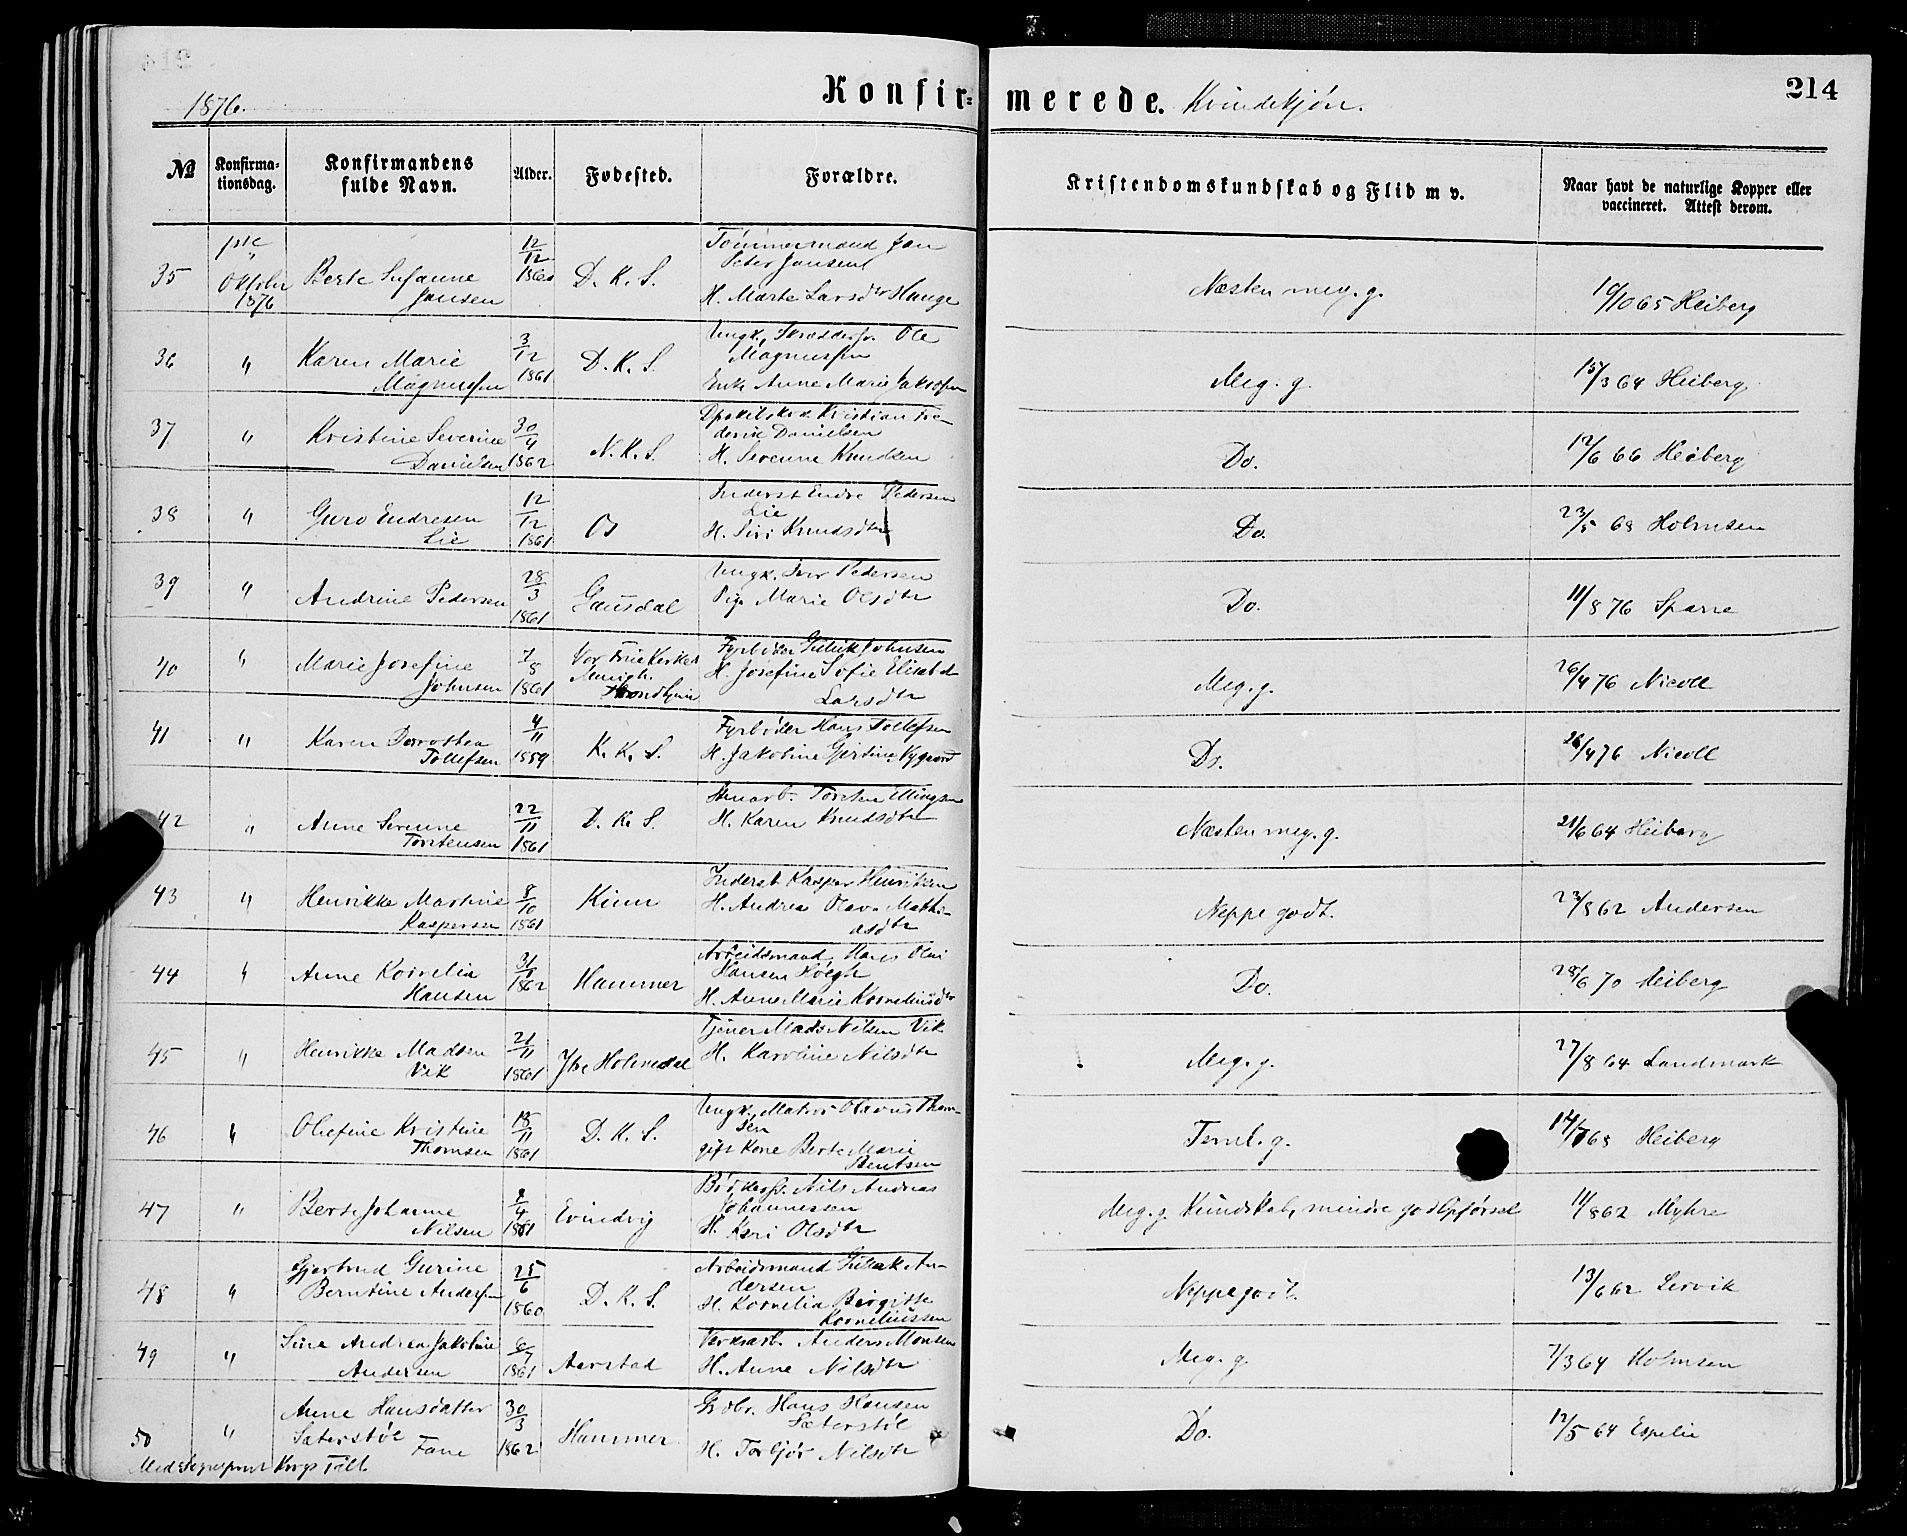 1876.
Konfir=
merede. Kvindekjøn.
214
№
Konfirma-
tionsdag.
Konfirmandens
fulde Navn.
Alder.
Fødested.
Forældre.
Kristendomskundskab og Flid m v.
Naar havt de naturlige Kopper eller
vaccineret. Attest derom.
35
Oktober
1876
Berte Susanne
Jansen
12/12
1860
D. K. S.
Tømmermand Jan
Peter Jansen
H. Marte Larsdtr Hauge
Næsten meg. g.
10/10 65 Heiberg
36
"
Karen Marie
Magnussen
3/12
1861
D. K. S.
Ungk. Skrædder Ole
Magnussen
Enke Anne Marie Jakobsen
Meg. g.
15/3 64 Heiberg
37
"
Kristine Severine
Danielsen
30/4
1862
N. K. S.
Kristian Fre-
derik Danielsen
H. Severine Knudsen
Do.
12/6 66 Heiberg
38
"
Guro Endresen
Lie
12/12
1861
Os
Inderst Endre Pedersen
Lie
H. Siri Knudsdtr
Do.
23/5 68 Holmsen
39
"
Andrine Pedersen
28/3
1861
Gausdal
Ungk. Iver Pedersen
Pige Marie Olsdtr
Do.
11/8 76 Sparre
40
"
Marie Josefine
Johnsen
7/8
1861
Vor Frue Kirkes
Menigh.
Trondhjem
Fyrbøder Gullik Johnsen
H. Josefine Sofie Elisabet
Larsdtr
Meg. g.
26/4 76 Nicoll
41
"
Karen Dorothea
Tollefsen
4/11
1859
K. K. S.
Fyrbøder Hans Tollefsen
H. Jakobine Gjertine Nygaard
Do.
26/4 76 Nicoll
42
"
Anne Severine
Torstensen
22/11
1861
D. K. S.
Stenarb. Torsten Ellingsen
H. Karen Knudsdtr
Næsten meg. g.
21/6 64 Heiberg
43
"
Henrikke Martine
Kaspersen
8/10
1861
Kinn
Inderst Kasper Henriksen
H. Andrea Olava Matthi-
asdtr
Neppe godt.
23/8 62 Andersen
44
"
Anne Kornelia
Hansen
31/1
1862
Hammer
Arbeidsmand Hans Olai
Hansen Høegh
H. Anne Marie Korneliusdtr
Do.
28/6 70 Heiberg
45
"
Henrikke Madsen
Vik
21/11
1861
Ytre Holmedal
Tjener Mads Nilsen Vik
H. Karoline Nilsdtr
Meg. g.
27/8 64 Landmark
46
"
Olefine Kristine
Thomsen
18/11
1861
D. K. S.
Ungk. Matros Olavus Thom-
sen
gift Kone Berte Marie
Bentsen
Teml. g.
14/7 68 Heiberg
47
"
Berte Johanne
Nilsen
9/4
1861
Evindvig
Bødkersv. Nils Andreas
Johannessen
H. Kari Olsdtr
Meg. g. Kundskab, mindre god Opførsel
11/8 62 Myhre
48
"
Gjertrud Gurine
Berntine Andersen
25/6
1860
D. K. S.
Arbeidsmand Gullak An-
dersen
H. Kornelia Birgitte
Korneliussen
Neppe godt.
13/6 62 Lervik
49
"
Sine Andrea Jakobine
Andersen
6/7
1861
Aarstad
Værksarb. Anders Monsen
H. Anne Nilsdtr
Meg. g.
7/3 64 Holmsen
50
"
Anne Hansdatter
Sæterstøl
Fane
30/3
1862
Hammer
Gbr. Hans Hansen
Sæterstøl
H. Torbjør Nilsdtr
Do.
12/5 64 Espelie